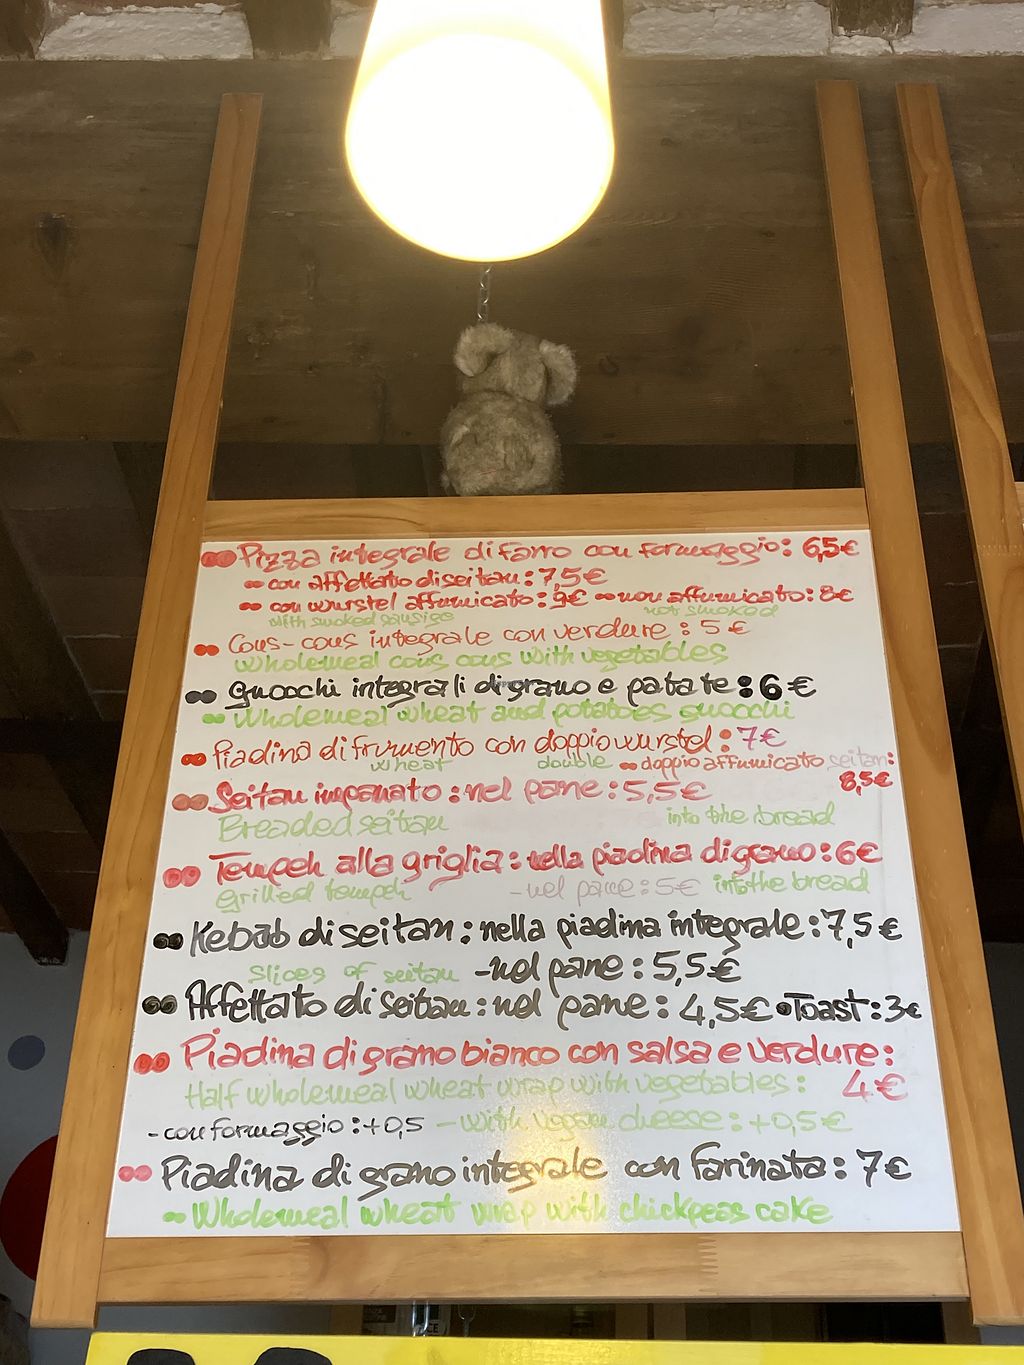 Pizza integrale di farro con formaggio: 6,5€
con affettato di seitan: 7,5€
con wurstel affumicato: 9€ non affumicato: 8€
with smoked sausige not smoked
Cous-cous integrale con verdure: 5€
Wholemeal cous cous with vegetables
Gnocchi integrali di grano e patate: 6€
Wholemeal wheat and potatoes gnocchi
Piadina di frumento con doppio wurstel: 7€
wheat double doppio affumicato seitan:
8,5€
Seitan impanato: nel pane: 5,5€
Breaded seitan into the bread
Tempeh alla griglia: nella piadina di grano: 6€
grilled tempeh -nel pane: 5€ into the bread
Kebab di seitan: nella piadina integrale: 7,5€
slices of seitan -nel pane: 5,5€
Affettato di seitan: nel pane: 4,5€ •Toast: 3€
Piadina di grano bianco con salsa e verdure:
Half wholemeal wheat wrap with vegetables: 4€
-con formaggio: +0,5 -with vegan cheese: +0,5€
Piadina di grano integrale con farinata: 7€
Wholemeal wheat wrap with chickpeas cake